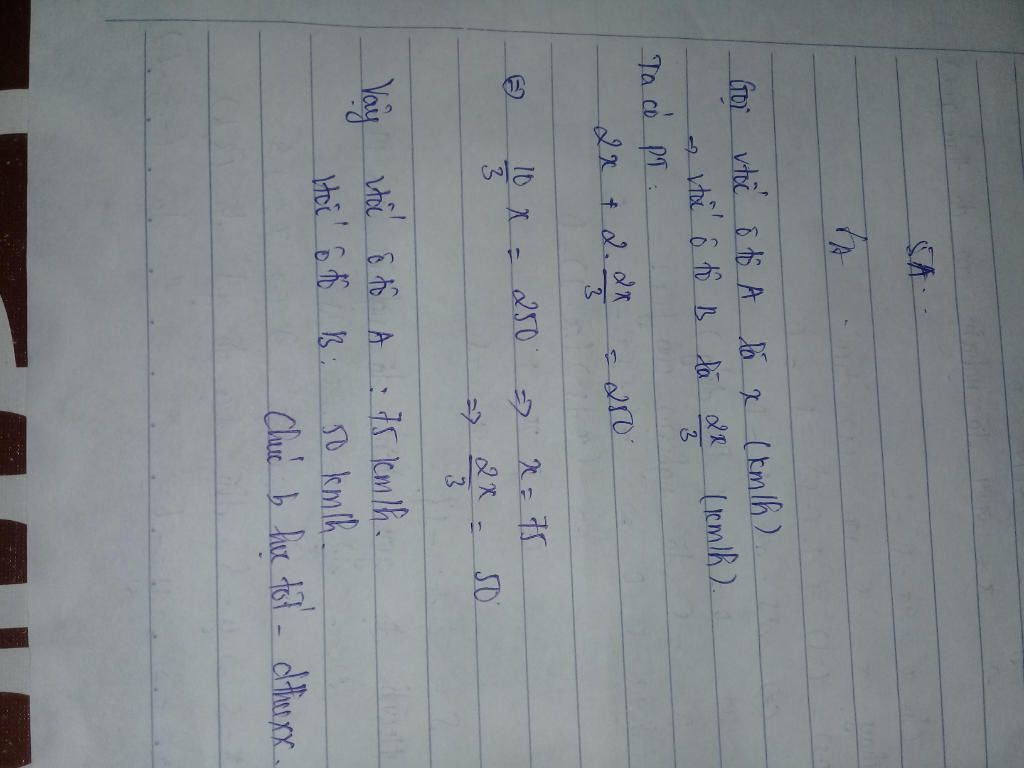 SA.
Gọi vtốc ô tô A là x (km/h).
⇒ vtốc ô tô B là 2x/3 (km/h).
Ta có pt:
2x + 2.2x/3 = 250.
⇔ 10/3 x = 250. ⇒ x = 75
⇒ 2x/3 = 50.
Vậy vtốc ô tô A : 75 km/h.
vtốc ô tô B: 50 km/h.
Chúc b học tốt - dthuxx.